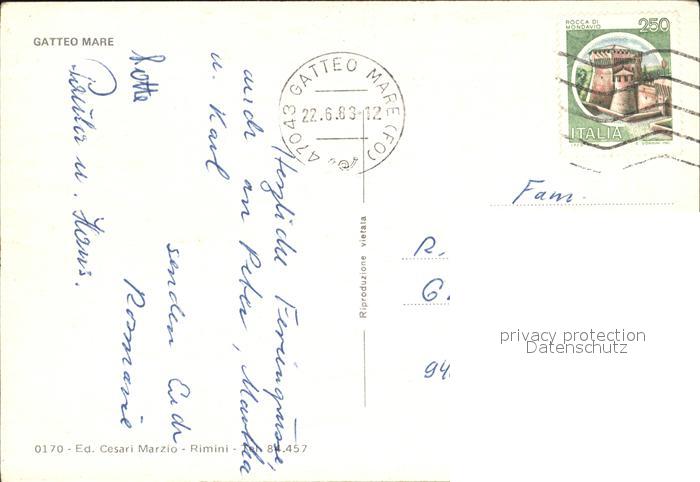 GATTEO MARE
Herzliche Feriengrüsse,
auch an Peter, Martha
u. Karl
senden Euch
Rosmarie
Lotte
Paula u. Hans.
47043 GATTEO MARE (FO)
22.6.83-12
ROCCA DI
MONDAVIO
250
ITALIA
Riproduzione vietata
Fam.
R.
G.
94
privacy protection
Datenschutz
0170 - Ed. Cesari Marzio - Rimini - Tel. 84.457